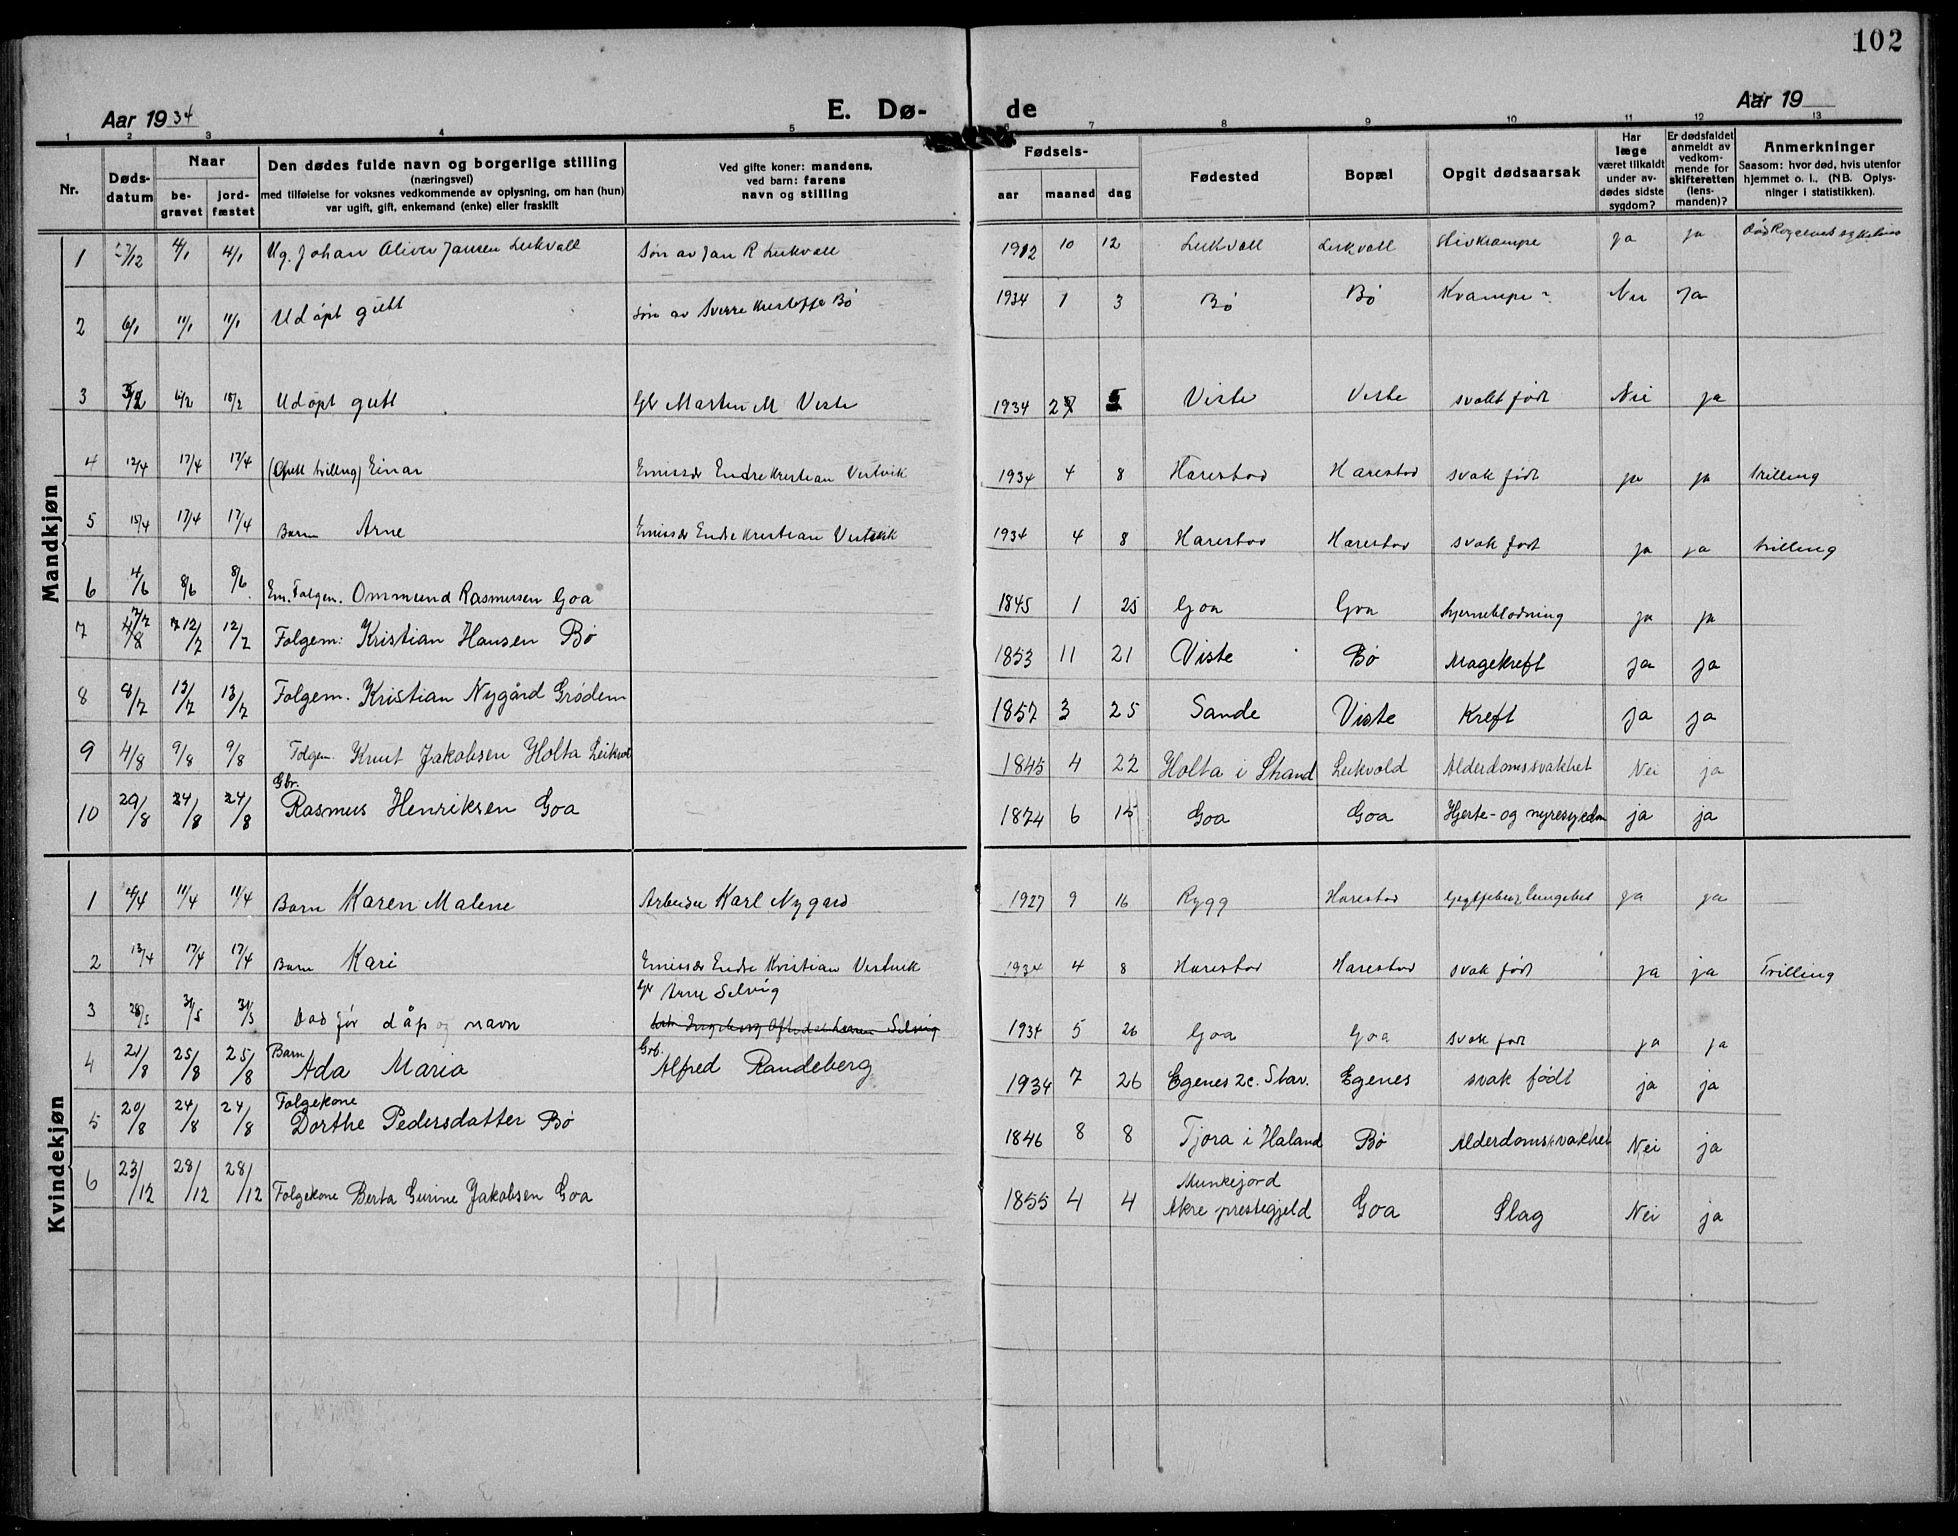 102
Aar 1934 E. Dø- de Aar 19
1 2 3 4 5 6 7 8 9 10 11 12 13
Nr. Døds-datum Naar be-gravet jord-fæstet Den dødes fulde navn og borgerlige stilling (næringsvei) med tilføielse for voksnes vedkommende av oplysning, om han (hun) var ugift, gift, enkemand (enke) eller fraskilt Ved gifte koner: mandens, ved barn: farens navn og stilling Fødsels- aar maaned dag Fødested Bopæl Opgit dødsaarsak Har læge været tilkaldt under av-dødes sidste sygdom? Er dødsfaldet anmeldt av vedkom-mende for skifteretten (lens-manden)? Anmerkninger Saasom: hvor død, hvis utenfor hjemmet o. l., (NB. Oplys-ninger i statistikken).
Mandkjøn
1 27/12 4/1 4/1 Ug. Johan Oliver Jansen Leikvall Søn av Jan R Leikvall 1912 10 12 Leikvall Leikvall stivkrampe ja ja
2 6/1 11/1 11/1 Udøpt gutt søn av Sverre Kristoffer Bø 1934 1 3 Bø Bø Krampe Nei Ja
3 15/2 Udøpt gutt Gbr Marten M Viste 1934 2 Viste Viste svakt født Nei ja
4 12/4 17/4 17/4 Einar Emissær Endre Kristian Vestvik 1934 4 8 Harestad Harestad svak født ja ja trilling
5 15/4 17/4 17/4 Barn Arne Emissær Endre Kristian Vestvik 1934 4 8 Harestad Harestad svak født ja ja trilling
6 4/6 8/6 8/6 Em. Folgem. Ommund Rasmussen Goa 1845 1 25 Goa Goa hjerneblødning ja ja
7 7/7 12/7 12/7 Folgem: Kristian Hansen Bø 1853 11 21 Viste Bø Magekreft ja ja
8 8/7 13/7 13/7 Folgem. Kristian Nygård Grødem 1857 3 25 Sande Viste Kreft ja ja
9 4/8 9/8 9/8 Folgem. Knut Jakobsen Holta Leikvoll 1845 4 22 Holta i Strand Leikvold Alderdomssvakhet Nei ja
10 20/8 24/8 24/8 Gbr. Rasmus Henriksen Goa 1874 6 15 Goa Goa Hjerte- og nyresykdom ja ja
Kvindekjøn
1 6/4 11/4 11/4 Barn Karen Malene Arbeider Karl Nygard 1927 9 16 Rygg Harestad ja ja
2 13/4 17/4 17/4 Barn Kari Emissær Endre Kristian Vestvik 1934 4 8 Harestad Harestad svak født ja ja Trilling
3 28/5 31/5 31/5 Død før dåp og navn Gbr Arne Selvig 1934 5 26 Goa Goa svak født ja ja
4 21/8 25/8 25/8 Barn Ada Maria Grb. Alfred Randeberg 1934 7 26 Egenes 2c. Stav. Egenes svak født ja ja
5 20/8 24/8 24/8 Folgekone Dorthe Pedersdatter Bø 1846 8 8 Tjora i Haland Bø Alderdomssvakhet Nei ja
6 23/12 28/12 28/12 Folgekone Berta Gurine Jakobsen Goa 1855 4 4 Munkejord Akre prestegjeld Goa Slag Nei ja